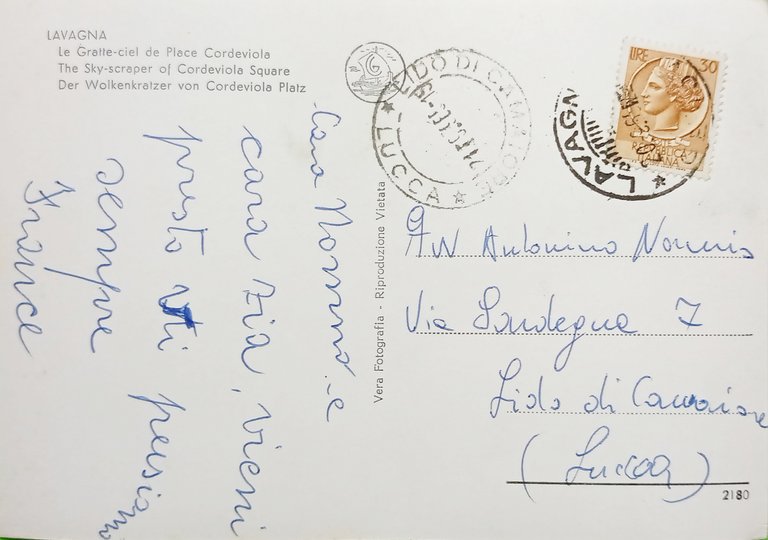 LAVAGNA
Le Gratte-ciel de Place Cordeviola
The Sky-scraper of Cordeviola Square
Der Wolkenkratzer von Cordeviola Platz
LIDO DI CAMAIORE
★ LUCCA ★
LIRE 30
REPUBBLICA
ITALIANA
LAVAGN
Cara Nonna e
cara Zia, vieni
presto ti pensiamo
sempre
France
Vera Fotografia - Riproduzione Vietata
Antonino
Via Sardegna 7
Lido di Camaiore
(Lucca)
2180